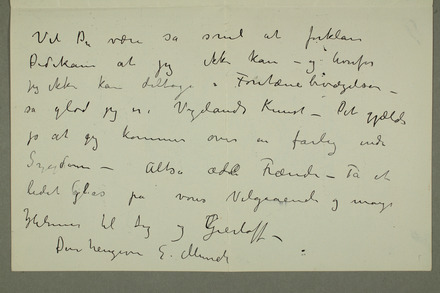 Vil Du være så snil at forklare
Didrikam at jeg ikke kan – og hvorfor
jeg ikke kan deltage i Fontænebevægelsen –
så glad jeg er i Vigelands Kunst – Det gjælder
jo at jeg kommer over en farlig
Sygdom – Altså ædle Frænde – Ta et
lidet Glas på vores Velgaaende og mange
Hilsener til Dig og Gierløff –
Din hengivne E. Munch